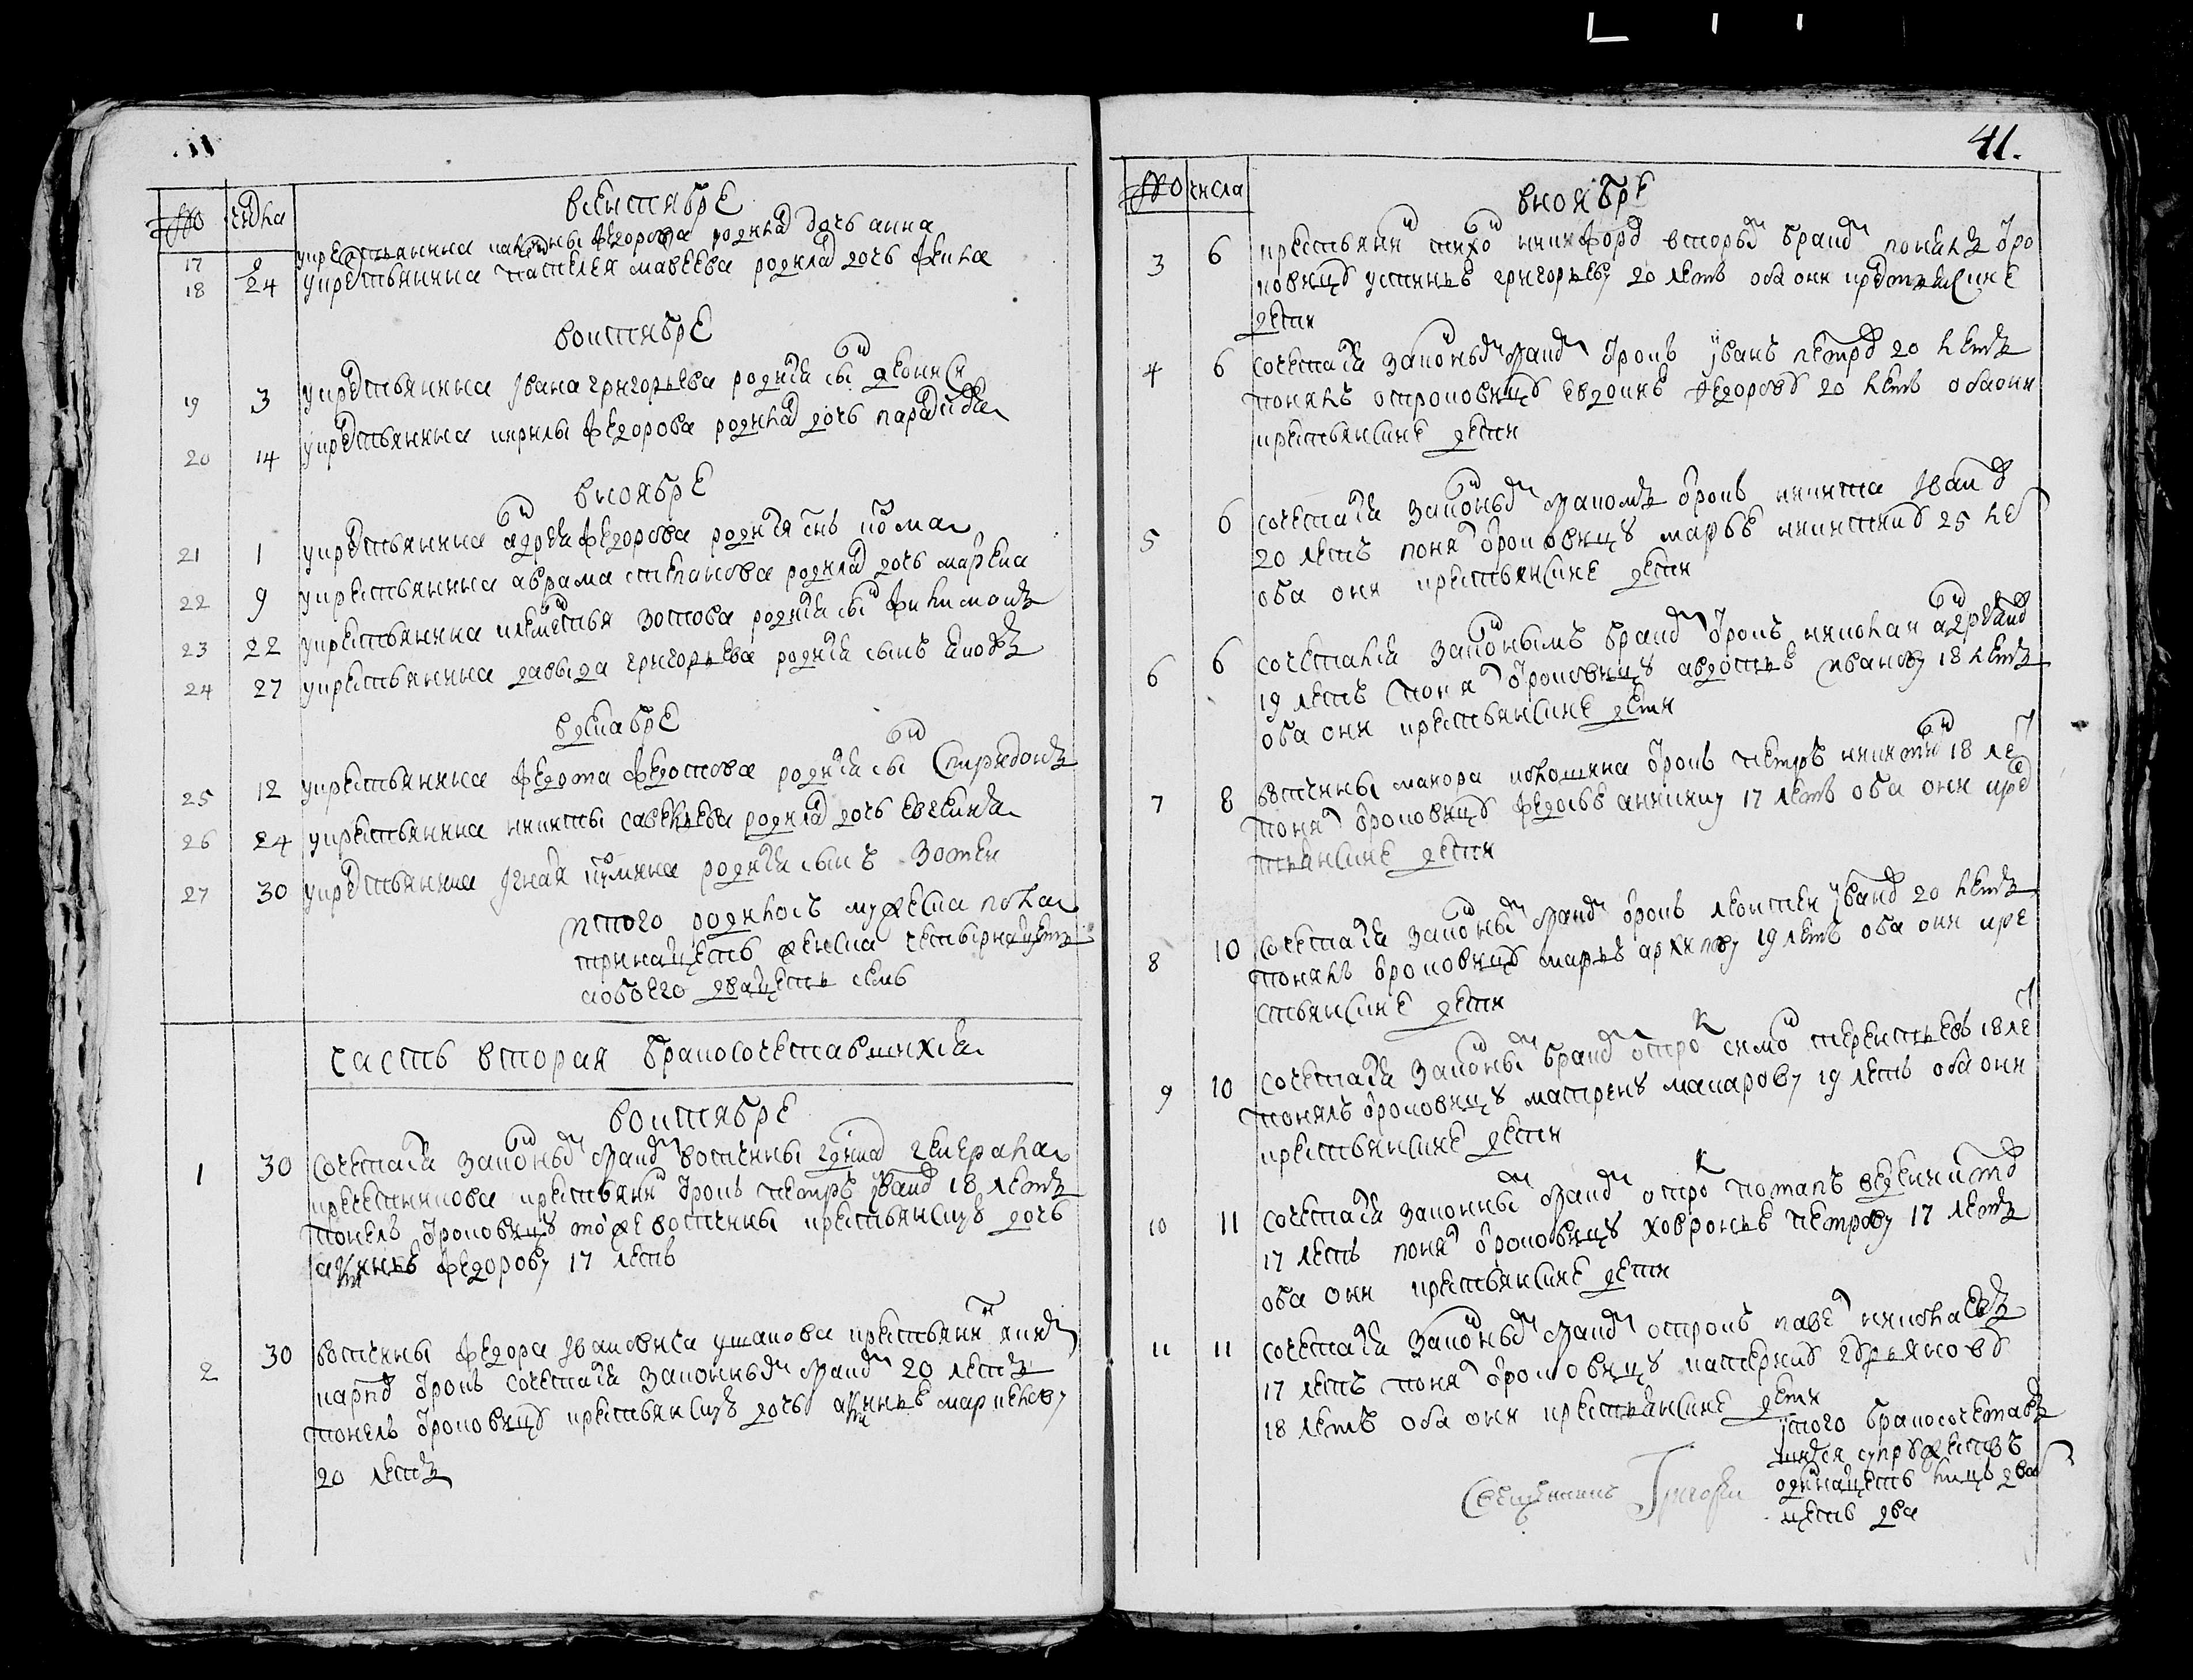 № числа
в сентябре
17 9 у крестьянина федорова родилась дочь анна
18 24 у крестьянина пантелея мавеева родилась дочь фекла
в октябре
19 3 у крестьянина Ивана григорьева родился сын деонисей
20 14 у крестьянина кирилы федорова родилась дочь параскева
в ноябре
21 1 у крестьянина андрея федорова родился сын козма
22 9 у крестьянина аврама степанова родилась дочь марена
23 22 у крестьянина клементья зотова родился сын филимонъ
24 27 у крестьянина давыда григорьева родился сынъ
в декабре
25 12 у крестьянина федота федотова родился сын спиридонъ
26 24 у крестьянина никиты савельева родилась дочь евгения
27 30 у крестьянина Игнатя кузмина родился сынъ Зотей
итого родилось мужеска пола
тринацеть женска четырнацеть
а обоего двацеть семь
часть вторая бракосочетавшихся
в октябре
1 30 сочетался законным браком вотчины генерала
крестьянин отрокъ петръ Иванов 18 летъ
понелъ отроковицу той же вотчины крестьянскую дочь
федорову 17 летъ
2 30 вотчины федора Ивановича ушакова крестьянин
карпов отрокъ сочетался законным браком 20 летъ
понелъ отроковицу крестьянскую дочь маркелову
20 летъ
41.
№ числа
в ноябре
3 6 крестьянин тихон никифоров вторым браком понялъ отро
ковицу устинью григорьеву 20 летъ оба они крестьянские
дети
4 6 сочетался законным браком отрокъ Иванъ петров 20 летъ
понялъ отроковицу евдокию федорову 20 летъ оба они
крестьянские дети
5 6 сочетался законным бракомъ отрокъ никита Иванов
20 летъ понял отроковицу марью никитину 25 лет
оба они крестьянские дети
6 6 сочетался законнымъ браком отрокъ николай андреянов
19 летъ понял отроковицу авдотью иванову 18 летъ
оба они крестьянские дети
7 8 вотчины маиора отрокъ петръ никитин 18 лет
понял отроковицу федосью аникину 17 летъ оба они кре
стьянские дети
8 10 сочетался законным браком отрокъ леонтей Иванов 20 летъ
понялъ отроковицу марью архипову 19 летъ оба они кре
стьянские дети
9 10 сочетался законным браком отрок симон терентьевъ 18 лет
понялъ отроковицу матрену макарову 19 летъ оба они
крестьянские дети
10 11 сочетался законным браком отрок потапъ
17 летъ понял отроковицу ховронью петрову 17 летъ
оба они крестьянские дети
11 11 сочетался законным браком отрокъ павел николаевъ
17 летъ понял отроковицу катерину гурьянову
18 летъ оба они крестьянские дети
итого бракосочетав
шихся супружествъ
одиннацеть лицъ два
цеть два
Священникъ Григорей